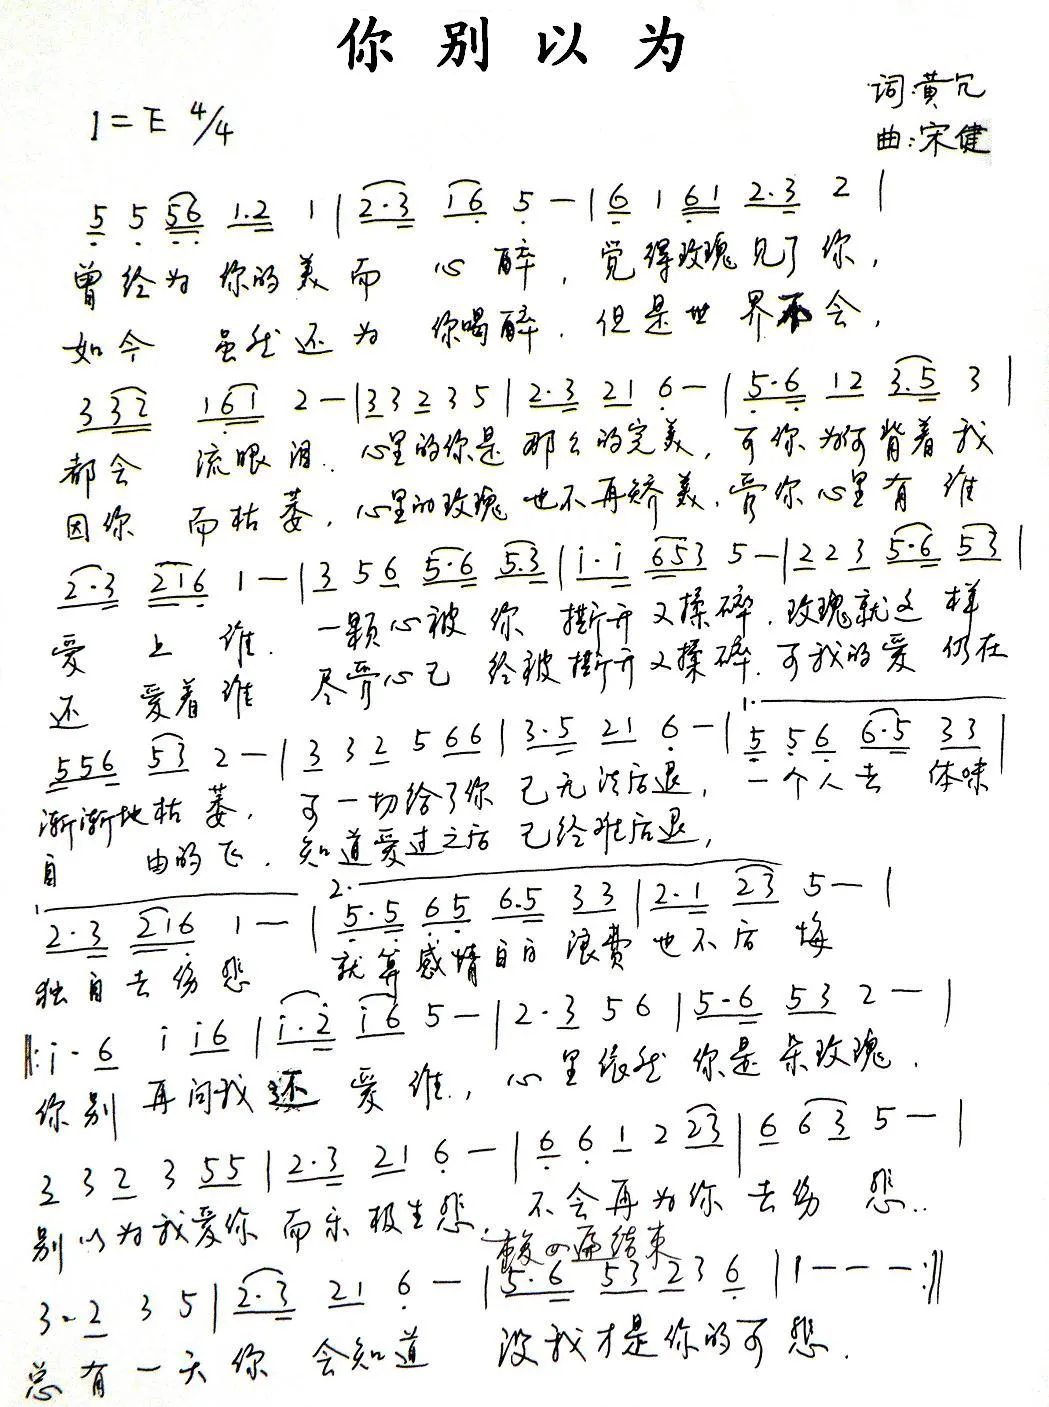 你别以为
词:黄冗
1=E 4/4
曲:宋健
5 5 56 1·2 1 | 2·3 i6 5 — | 6 1 61 2·3 2 |
曾经为你的美而 心醉，觉得玫瑰见了你，
如今 虽然还为 你喝醉．但是世界不会，
3 32 161 2 — | 3 3 2 3 5 | 2·3 21 6 — | 5·6 12 3.5 3 |
都会 流眼泪．心里的你是那么的完美，可你为何背着我
因你 而枯萎，心里的玫瑰也不再娇美，管你心里有谁
2·3 216 1 — | 3 5 6 5·6 5.3 | i·i 653 5 — | 2 2 3 5·6 53 |
爱 上 谁．一颗心被 你 撕开又揉碎．玫瑰就这样
还 爱着谁 尽管心已 给被撕开又揉碎．可我的爱 仍在
1.
556 53 2 — | 3 3 2 5 66 | 3·5 21 6 — | 5 5 6 6·5 33 |
渐渐地枯萎．可一切给了你 已无法后退，一个人去 体味
自 由的飞．知道爱过之后 已经难后退，
1 2.
2·3 216 1 — | 5·5 65 6.5 33 | 2·1 23 5 — |
独自去伤悲 就算感情白白浪费也不后悔
‖: i· 6 i i6 | i·2 i6 5 — | 2·3 5 6 | 5·6 53 2 — |
你别 再问我还 爱 谁．，心里依然 你是朵玫瑰．
3 3 2 3 55 | 2·3 21 6 — | 6 6 1 2 23 | 6 6 3 5 — |
别以为我爱你 而乐极生悲．不会再为你 去伤 悲．．
结束
3· 2 3 5 | 2·3 21 6 — | 5·6 53 2 3 6 | 1 — — — :‖
总有一天你 会知道 没我才是你的可悲．